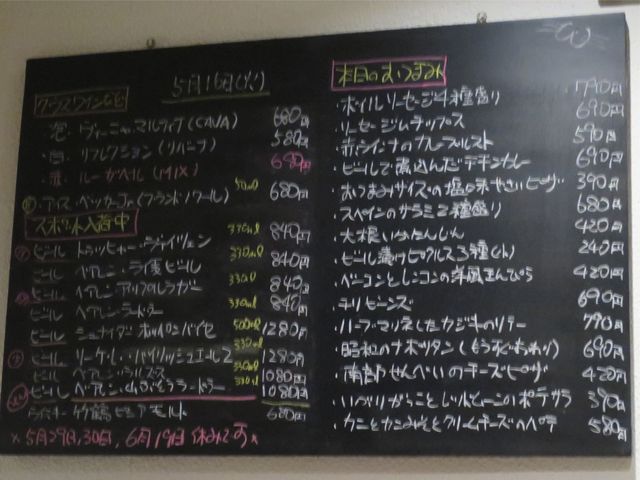 5月16日(火)
グラスワインなど
泡・ドゥーニャ・マルティナ(CAVA) 680円
白・リフレクション(リパーナ) 580円
赤・ルーガベル(MIX) 680円
アイス・ペッカーJr(ブランドノワール) 50ml 680円
スポット入荷中
ビール トラッシャー・ヴァイツェン 330ml 840円
ビール ベアレン・ライ麦ビール 330ml 840円
ビール ベアレン・アップルラガー 330ml 840円
ビール ベアレン・ラードラー 330ml 840円
ビール シュナイダー ホッペンヴァイセ 500ml 1280円
ビール 330ml 1280円
ビール ベアレン 330ml 1080円
ビール ベアレン・山ぶどうラードラー 330ml 1080円
竹鶴ピュアモルト 680円
×5月29日,30日,6月19日 休みです×
本日のおつまみ
・ボイルソーセージ4種盛り 790円
・ソーセージとチップス 690円
・赤ウインナのカレーブルスト 590円
・ビールで煮込んだチキンカレー 690円
・おつまみサイズの塩味やさいピザ 390円
・スペインのサラミ2種盛り 680円
・大根いかたんじん 420円
・ビール漬けピクルス3種(小) 240円
・ベーコンとレンコンの洋風きんぴら 420円
・チリビーンズ 690円
・ハーブマリネしたカジキのソテー 790円
・昭和のナポリタン 690円
・南部せんべいのチーズピザ 420円
・いぶりがっことじゃがいものポテサラ 390円
・カニとカニみそとクリームチーズのパテ 580円